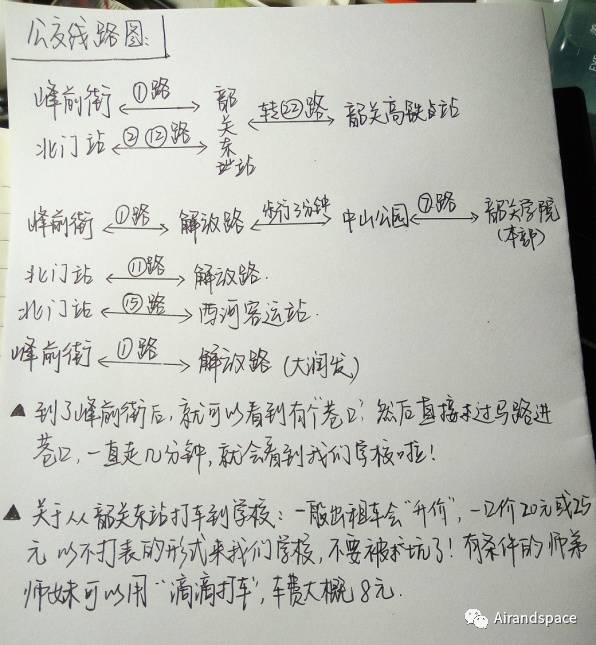 公交线路图:
峰前街 ①路 韶关东站 转㉒路 韶关高铁站
北门站 ② ⑫路
峰前街 ①路 解放路 步行3分钟 中山公园 ⑦路 韶关学院(本部)
北门站 ⑪路 解放路.
北门站 ⑮路 西河客运站.
峰前街 ①路 解放路 (大润发)
▲ 到了峰前街后,就可以看到有个巷口;然后直接走过马路进
巷口,一直走几分钟,就会看到我们学校啦!
▲ 关于从韶关东站打车到学校:一般出租车会“升价”,一口价20元或25
元 以不打表的形式来我们学校,不要被坑了!有条件的师弟
师妹可以用“滴滴打车”,车费大概8元.
Airandspace